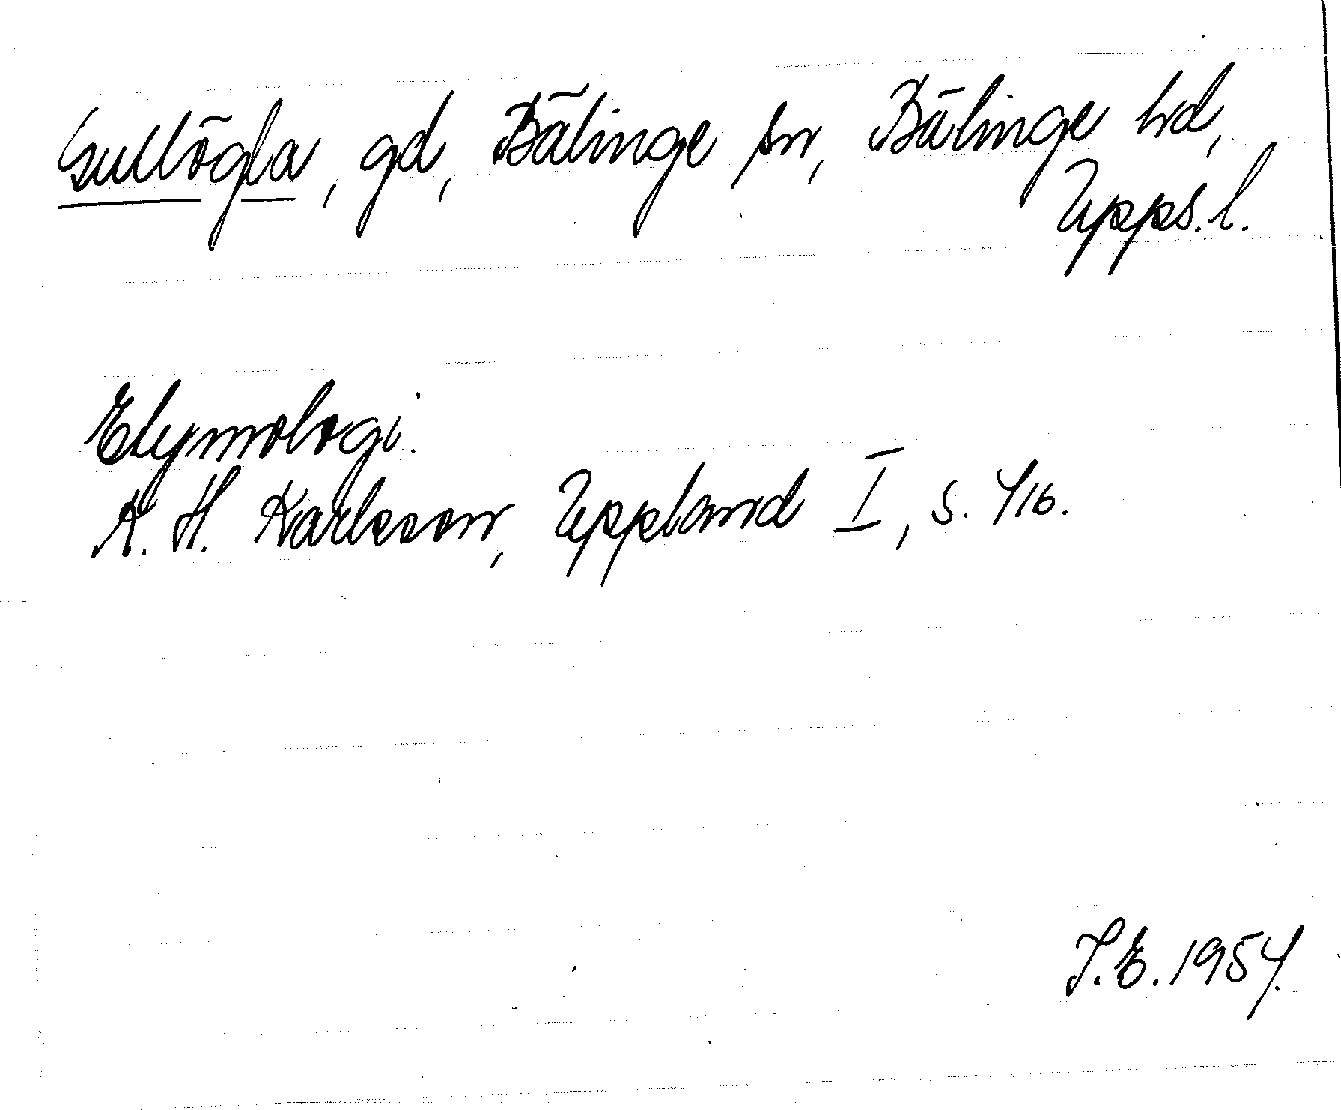 Gullögla, gd, Bälinge sn, Bälinge hd,
Upps. l.
Etymologi.
K. H. Karlsson, Uppland I, s. 416.
I.E. 1954.